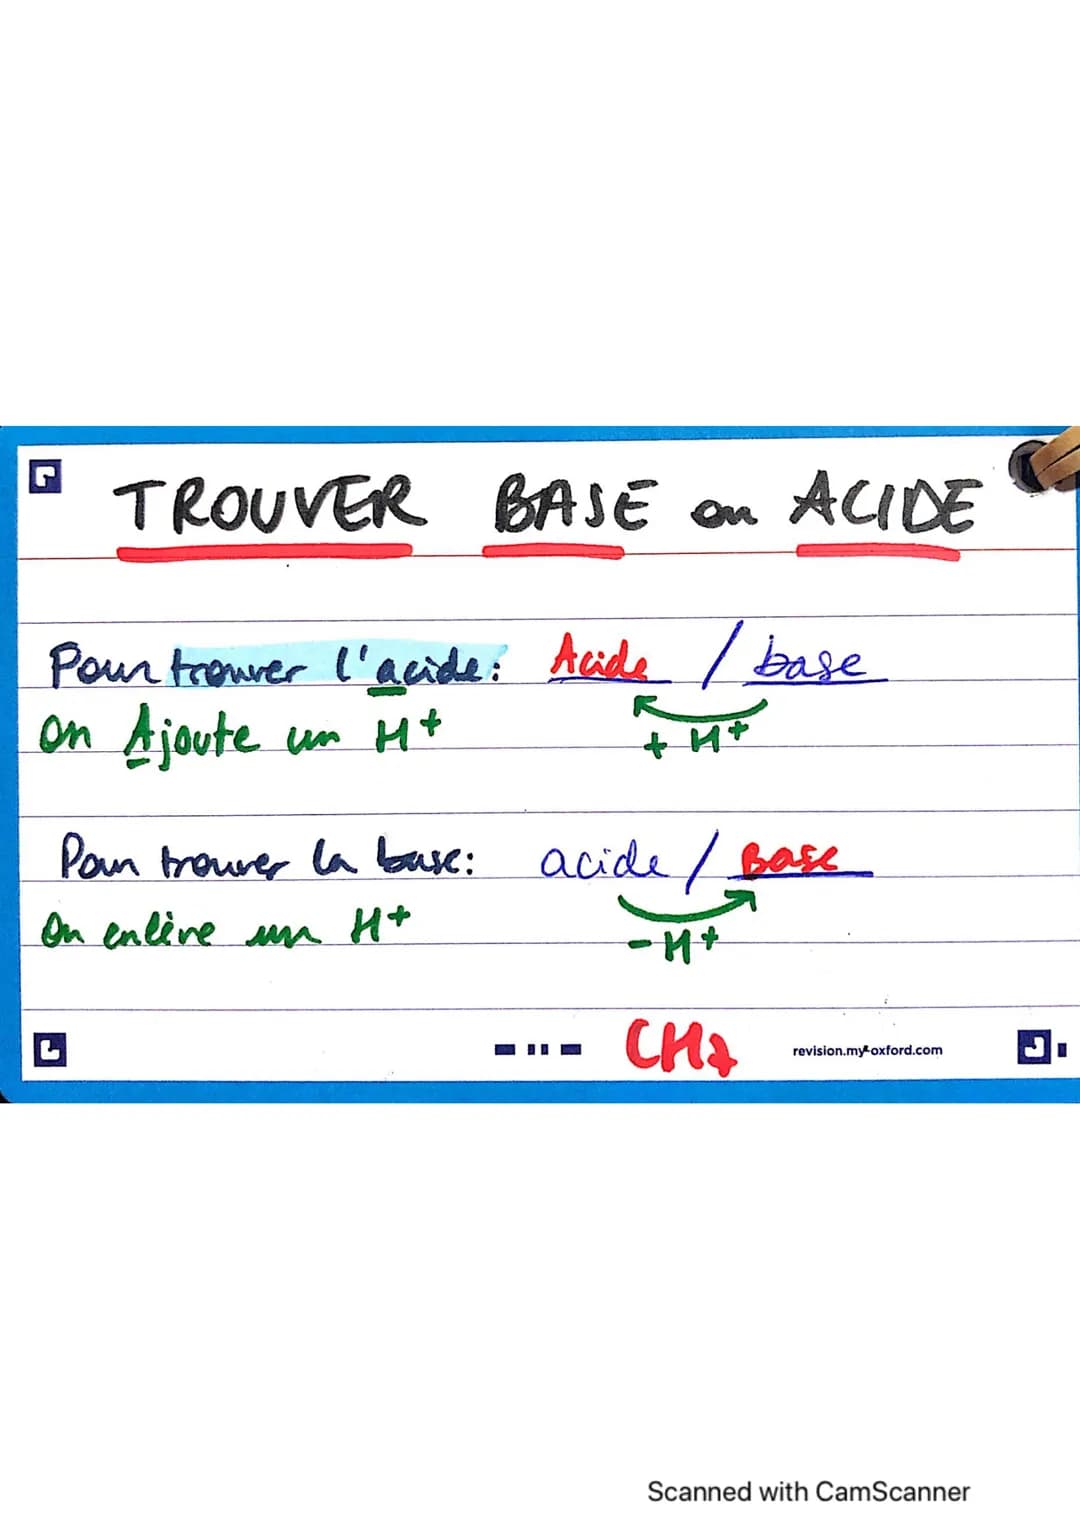 TROUVER BASE ou ACIDE
Pour trouver l'acide: Acide / base
On Ajoute un H+
+ H+
Pour trouver la base: acide / Base
On enlève un H+
- H+
revision.myoxford.com
Scanned with CamScanner